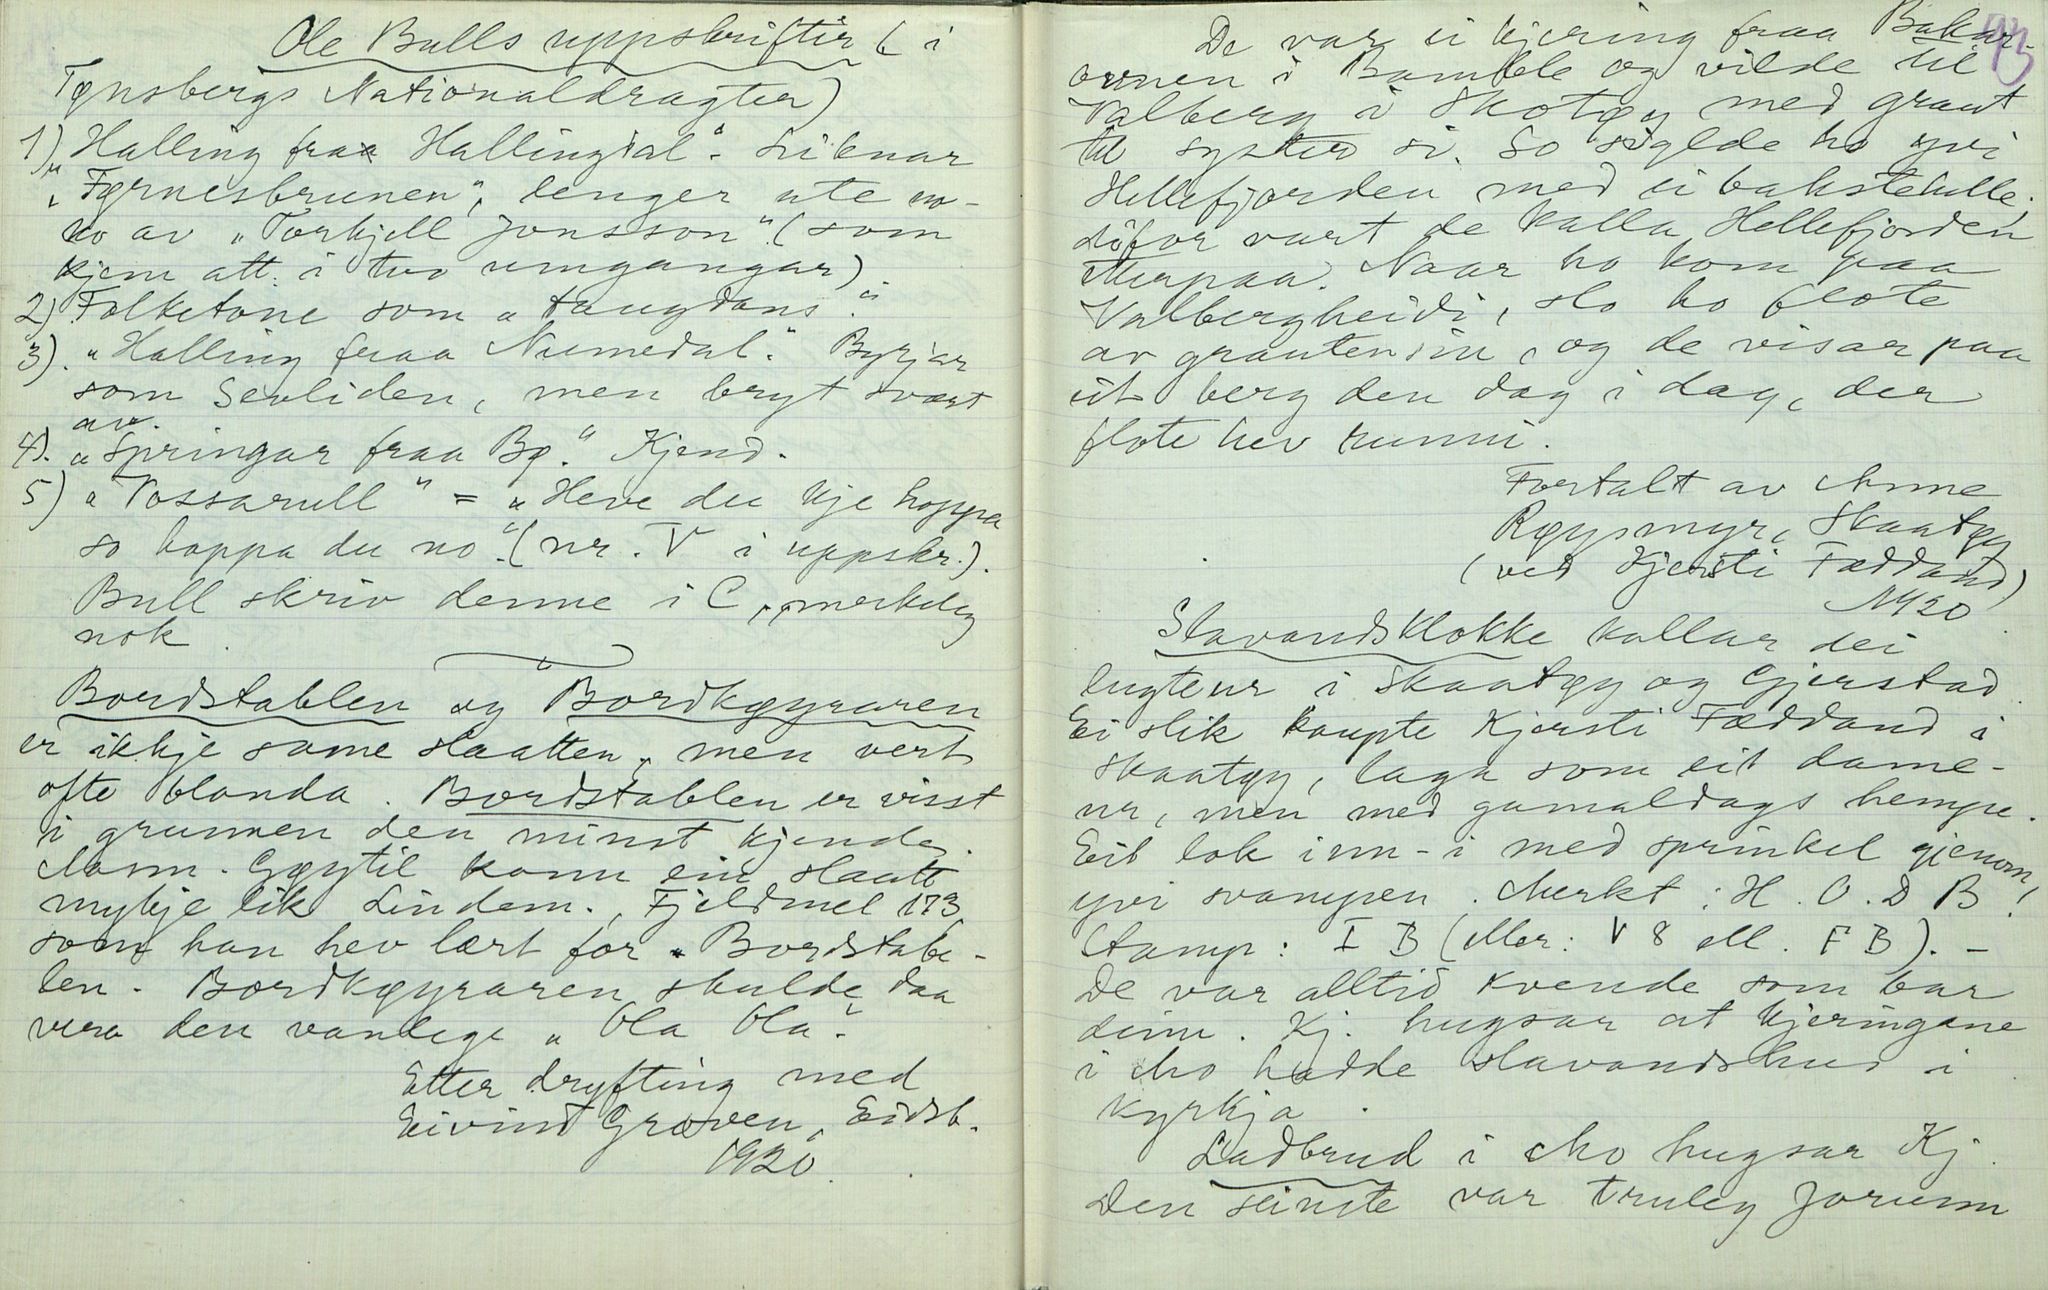 Ole Bulls uppskrifter (i
Tønsbergs Nationaldragter)
1) „Halling fraa Hallingdal“. Liknar
„Førnesbrunen“, lenger ute no-
ko av „Torkjell Jonsson“ (som
kjem att i two umgangar)
2) Folketone som „Laugdans“.
3). „Halling fraa Numedal“. Byrjar
som Sevliden, men bryt svært
av.
4). „Springar fraa Bø.“ Kjend.
5) „Vossarull“ = „Heve du kje hoppa
so hoppa du no“. (nr. V i uppskr.).
Bull skriv denne i C, merkeleg
nok.
Bordstabelen og Bordkøyraren
er ikkje same slaatten, men vert
ofte blanda. Bordstablen er visst
i grunnen den minst kjende.
Gøytil kann ein slaatt
mykje lik Lindem., Fjeldmel 173
som han hev lært for „Bordstabe-
len. Bordkøyraren skulde daa
vera den vanlege „Ola Ola“.
Etter dryfting med
Eivind Groven, Eidsb.
1920.
93
De var ei kjering fraa Bakar-
ovnen i Bamble og vilde til
Valberg i Skotøy med graut
til syster si. So siglde ho yvi
Hellefjorden med ei bakstehelle,
difor vart de kalla Hellefjorden
sterpaa. Naar ho kom paa
Valbergheidi, slo ho fløte
av grauten sin, og de visar paa
eit berg den dag i dag, der
fløte hev runni.
Fortalt av Anne
Røysmyr, Skaatøy
(ved Kjersti Fæddand)
1920.
Slavandsklokke kallar dei
lugteur i Skaatøy og Gjerstad.
Ei slik kaupte Kjersti Fæddand i
Skaatøy, laga som eit dame-
ur, men med gamaldags hempe.
Eit lok inn-i med sprinkel gjenom,
yvi svampen. Merkt: H. O. D B!
Stamp: I B (eller: V 8 ell. F B). –
De var alltid kvende som bar
deim. Kj. hugsar at kjeringane
i Mo hadde slavandshus i
kyrkja.
Ladbrud i Mo hugsar Kj.
Den seinste var truleg Jorunn